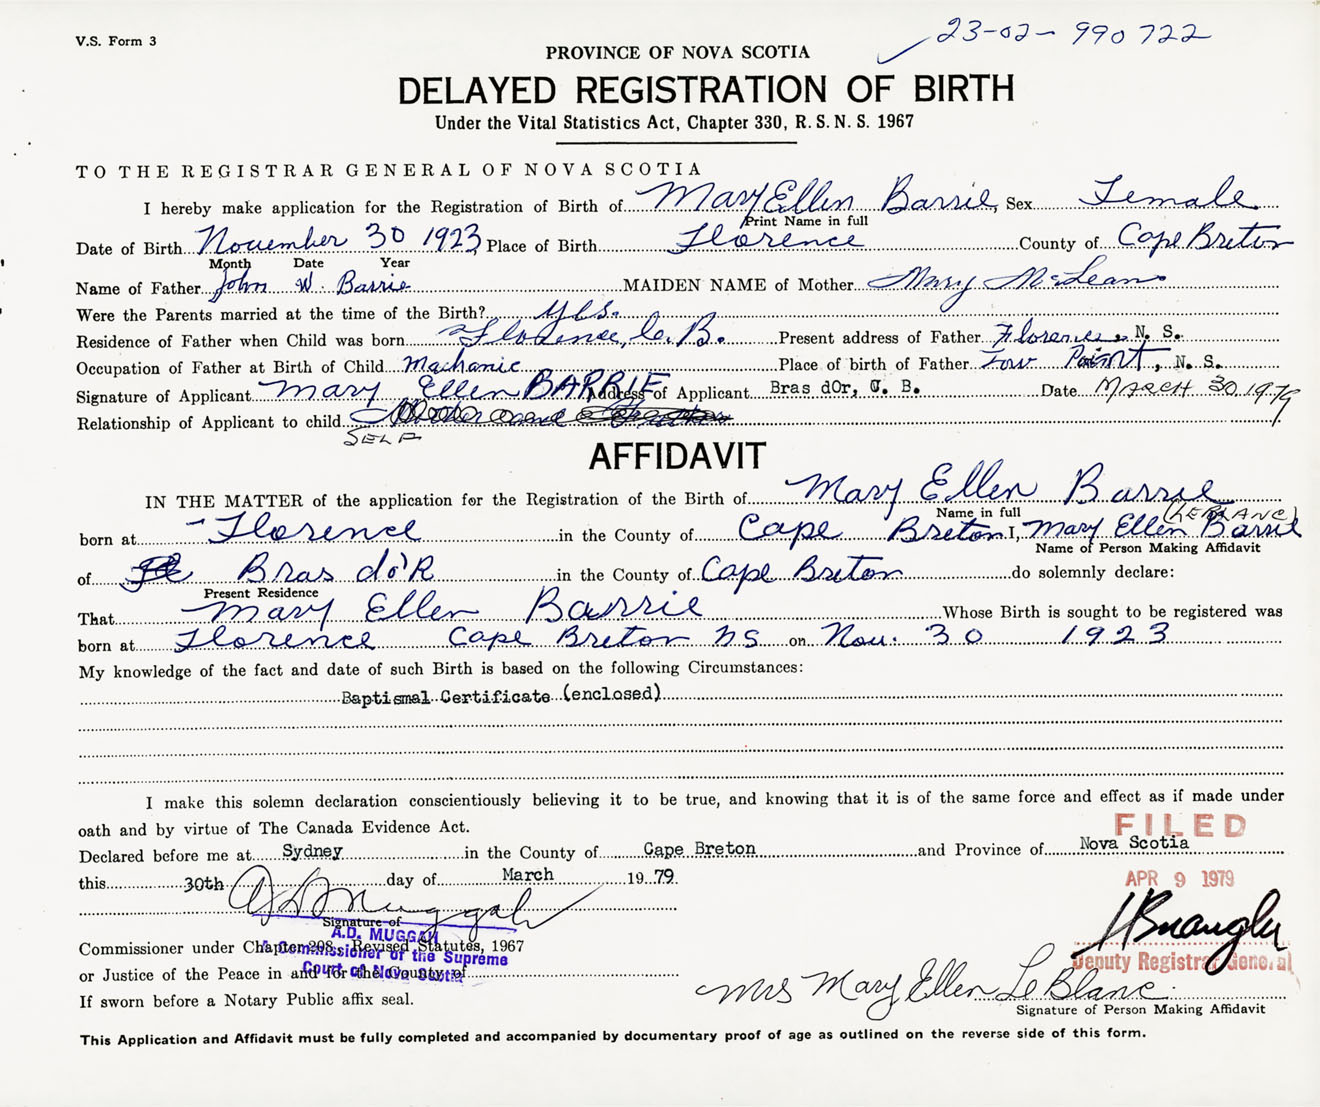 V.S. Form 3
23-02-990722
PROVINCE OF NOVA SCOTIA
DELAYED REGISTRATION OF BIRTH
Under the Vital Statistics Act, Chapter 330, R. S. N. S. 1967
TO THE REGISTRAR GENERAL OF NOVA SCOTIA
I hereby make application for the Registration of Birth of Mary Ellen Barrie, Sex Female
Print Name in full
Date of Birth November 30 1923 Place of Birth Florence County of Cape Breton
Month Date Year
Name of Father John W. Barrie MAIDEN NAME of Mother Mary McLean
Were the Parents married at the time of the Birth? yes.
Residence of Father when Child was born Florence, C. B. Present address of Father Florence, N. S.
Occupation of Father at Birth of Child Machanic Place of birth of Father Tow Point, N. S.
Signature of Applicant Mary Ellen BARRIE Address of Applicant Bras dOr, C. B. Date MARCH 30, 1979
Relationship of Applicant to child
SELF
AFFIDAVIT
IN THE MATTER of the application for the Registration of the Birth of Mary Ellen Barrie
Name in full (LEBLANC)
born at Florence in the County of Cape Breton I, Mary Ellen Barrie
Name of Person Making Affidavit
of Bras do'R in the County of Cape Breton do solemnly declare:
Present Residence
That Mary Ellen Barrie Whose Birth is sought to be registered was
born at Florence Cape Breton NS on Nov. 30 1923
My knowledge of the fact and date of such Birth is based on the following Circumstances:
Baptismal Certificate (enclosed)
I make this solemn declaration conscientiously believing it to be true, and knowing that it is of the same force and effect as if made under
oath and by virtue of The Canada Evidence Act.
FILED
Declared before me at Sydney in the County of Cape Breton and Province of Nova Scotia
this 30th day of March 19 79.
APR 9 1979
A D Muggah
Signature of
A.D. MUGGAH
Commissioner under Chapter 298, Revised Statutes, 1967
A Commissioner of the Supreme
Court of Nova Scotia
or Justice of the Peace in and for the County of
Deputy Registrar General
If sworn before a Notary Public affix seal.
Mrs Mary Ellen LeBlanc
Signature of Person Making Affidavit
This Application and Affidavit must be fully completed and accompanied by documentary proof of age as outlined on the reverse side of this form.